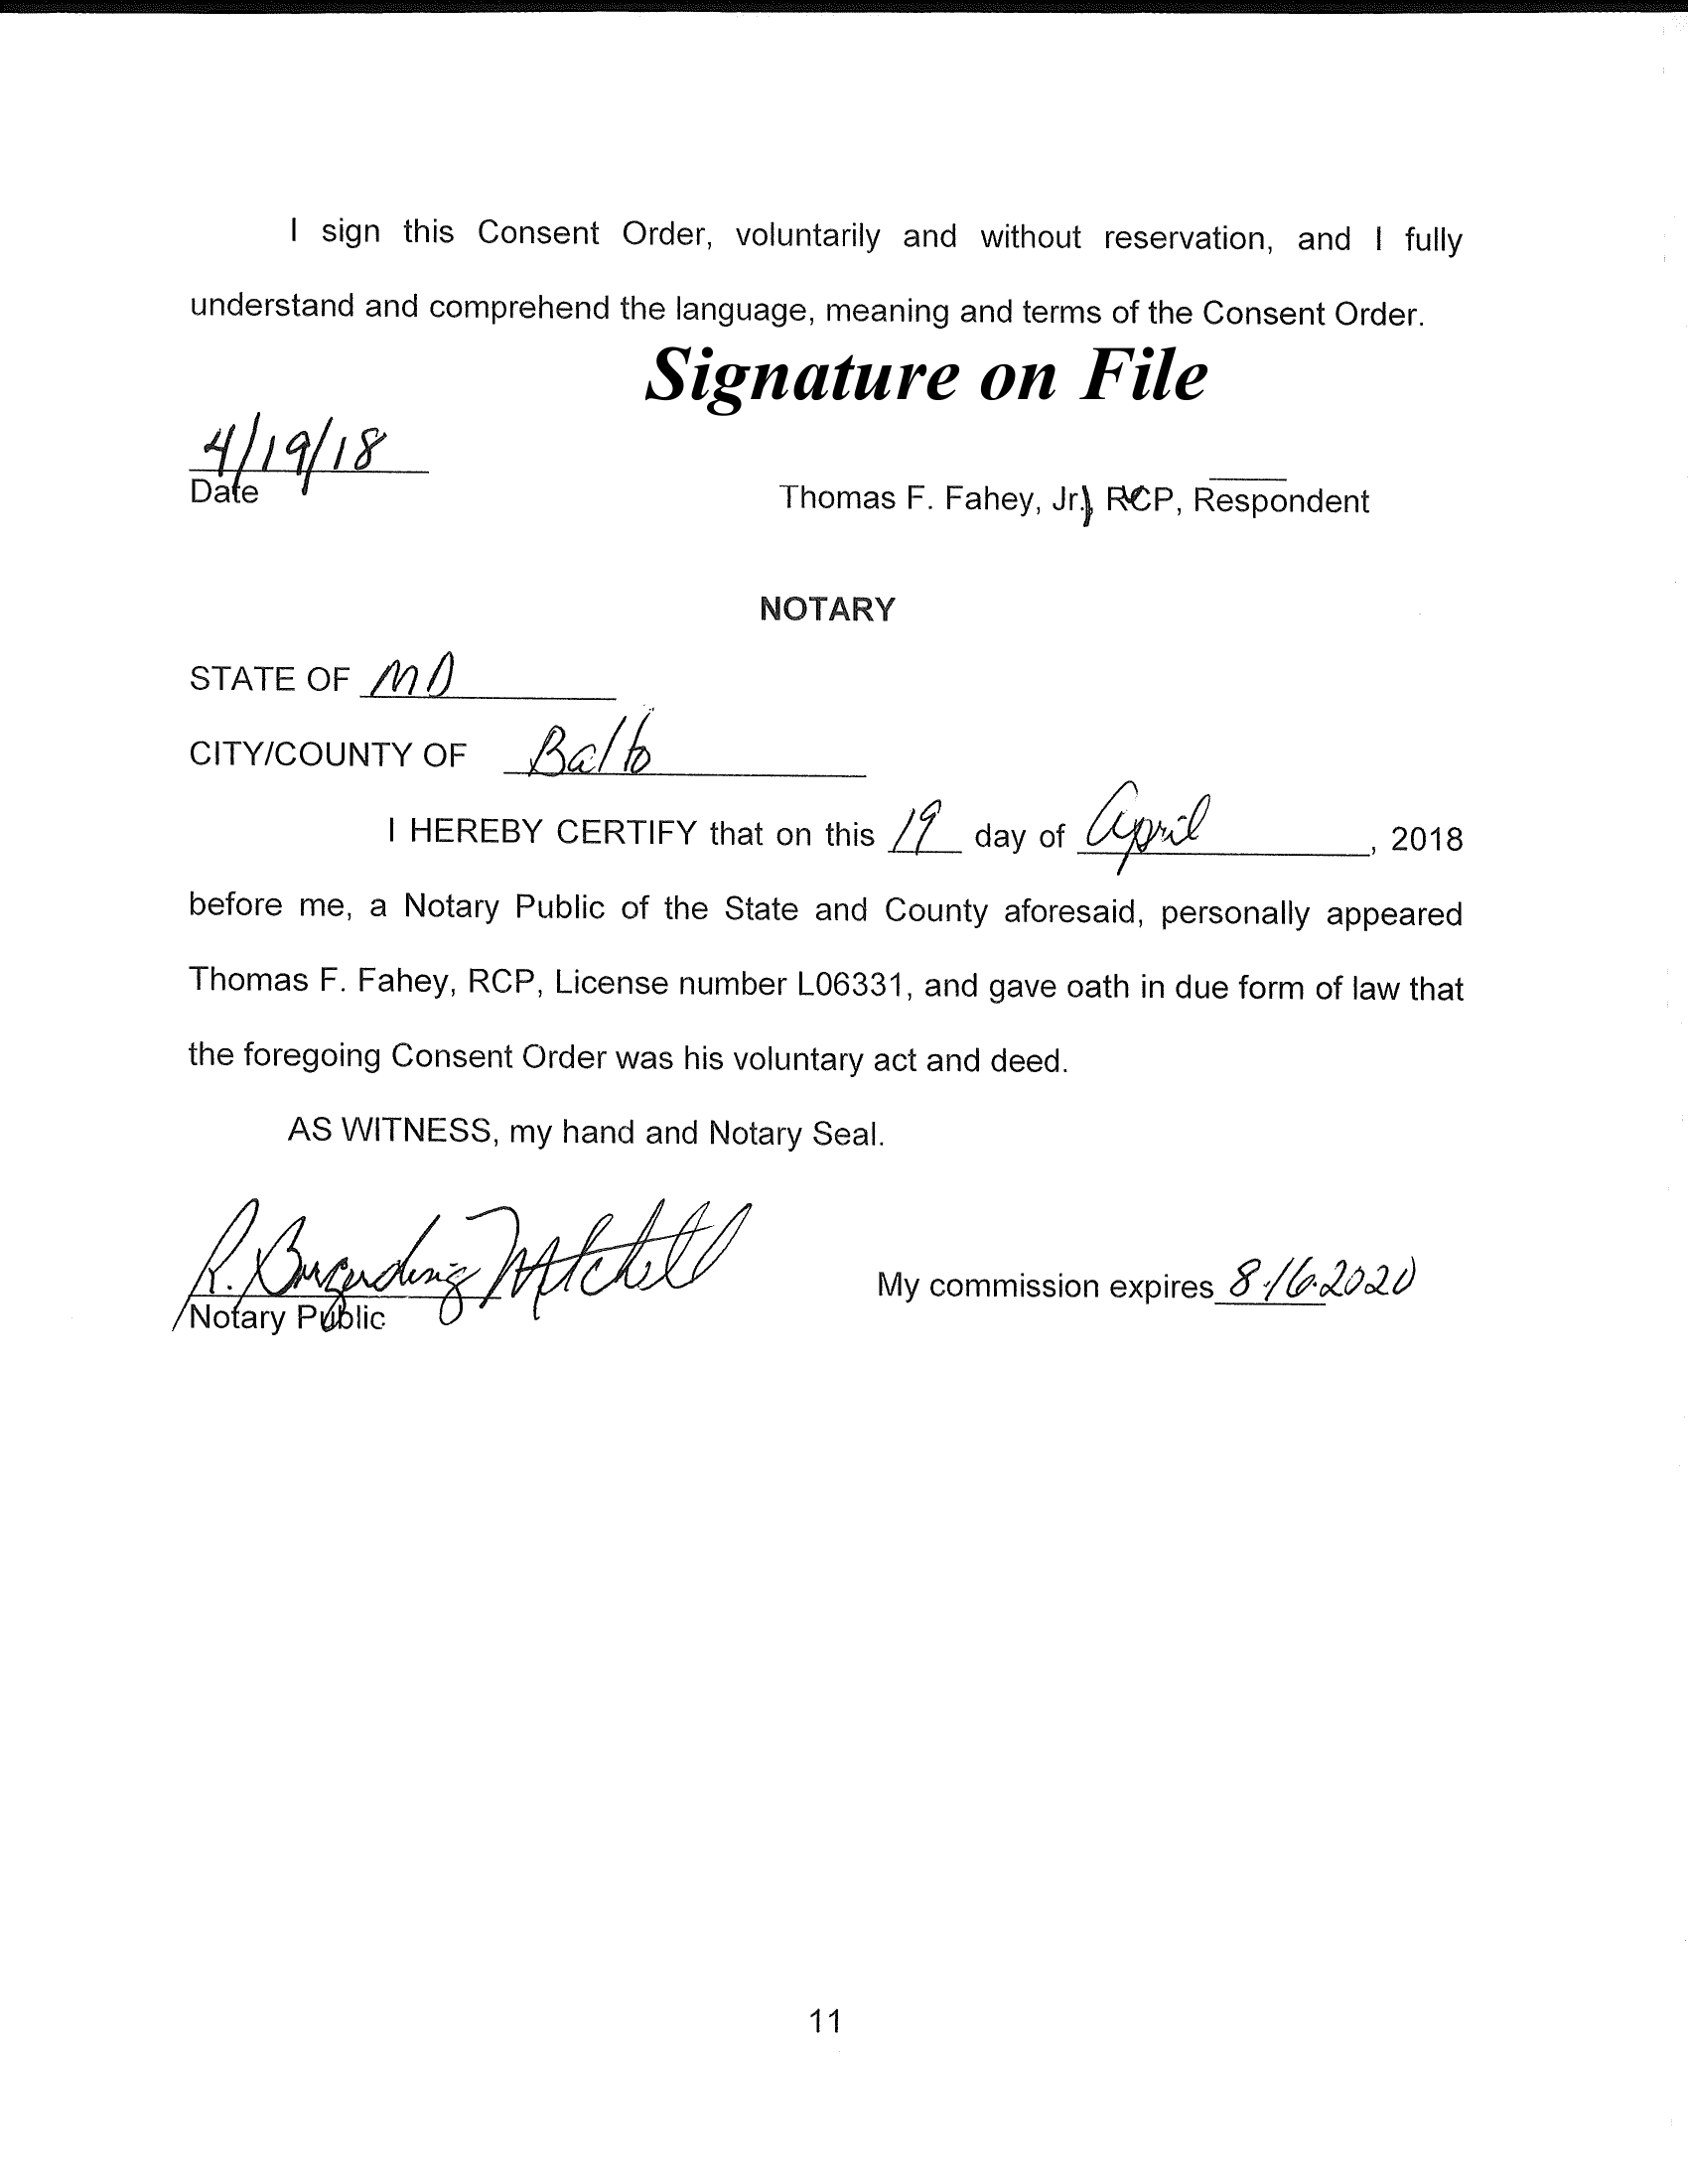 I sign this Consent Order, voluntarily and without reservation, and I fully
understand and comprehend the language, meaning and terms of the Consent Order.
Signature on File
4/19/18
Date
Thomas F. Fahey, Jr., RCP, Respondent
NOTARY
STATE OF MD
CITY/COUNTY OF Balto
I HEREBY CERTIFY that on this 19 day of April, 2018
before me, a Notary Public of the State and County aforesaid, personally appeared
Thomas F. Fahey, RCP, License number L06331, and gave oath in due form of law that
the foregoing Consent Order was his voluntary act and deed.
AS WITNESS, my hand and Notary Seal.
R. Mitchell
Notary Public
My commission expires 8.16.2020
11